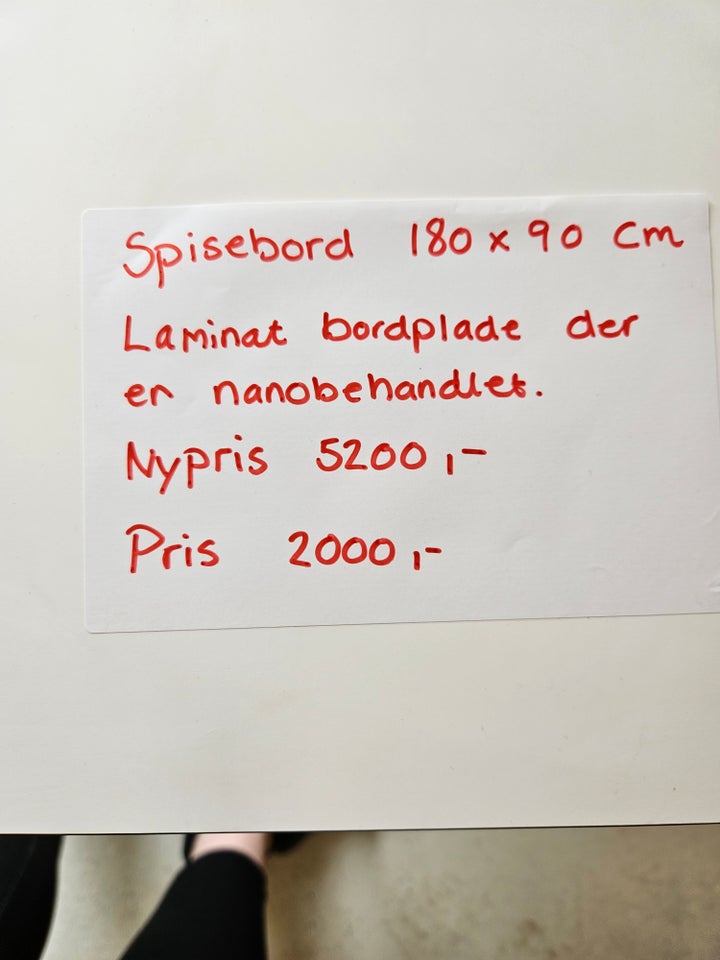 Spisebord 180 x 90 cm
Laminat bordplade der
er nanobehandlet.
Nypris 5200,-
Pris 2000,-